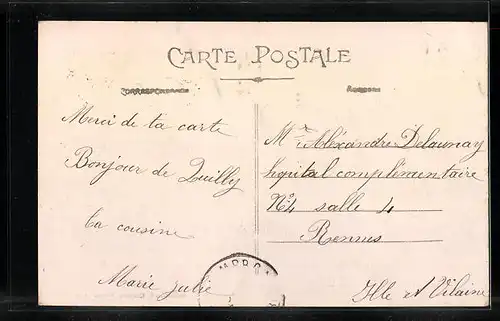 CARTE POSTALE
CORRESPONDANCE
ADRESSE
Merci de ta carte
Bonjour de Quilly
ta cousine
Marie julie
Mr Aléxandre Delaunay
hopital complémentaire
N°4 salle 4
Rennes
Ille et Vilaine